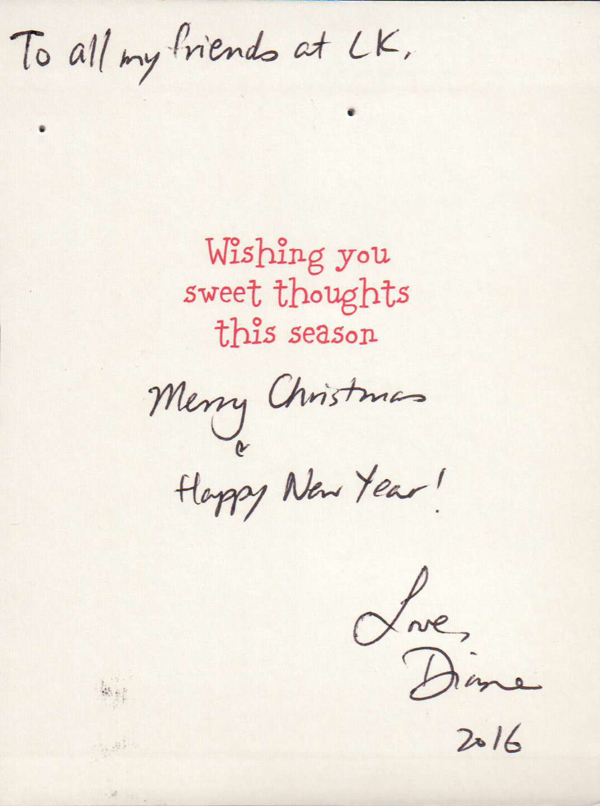 To all my friends at LK,
Wishing you
sweet thoughts
this season
Merry Christmas
&
Happy New Year!
Love,
Diane
2016